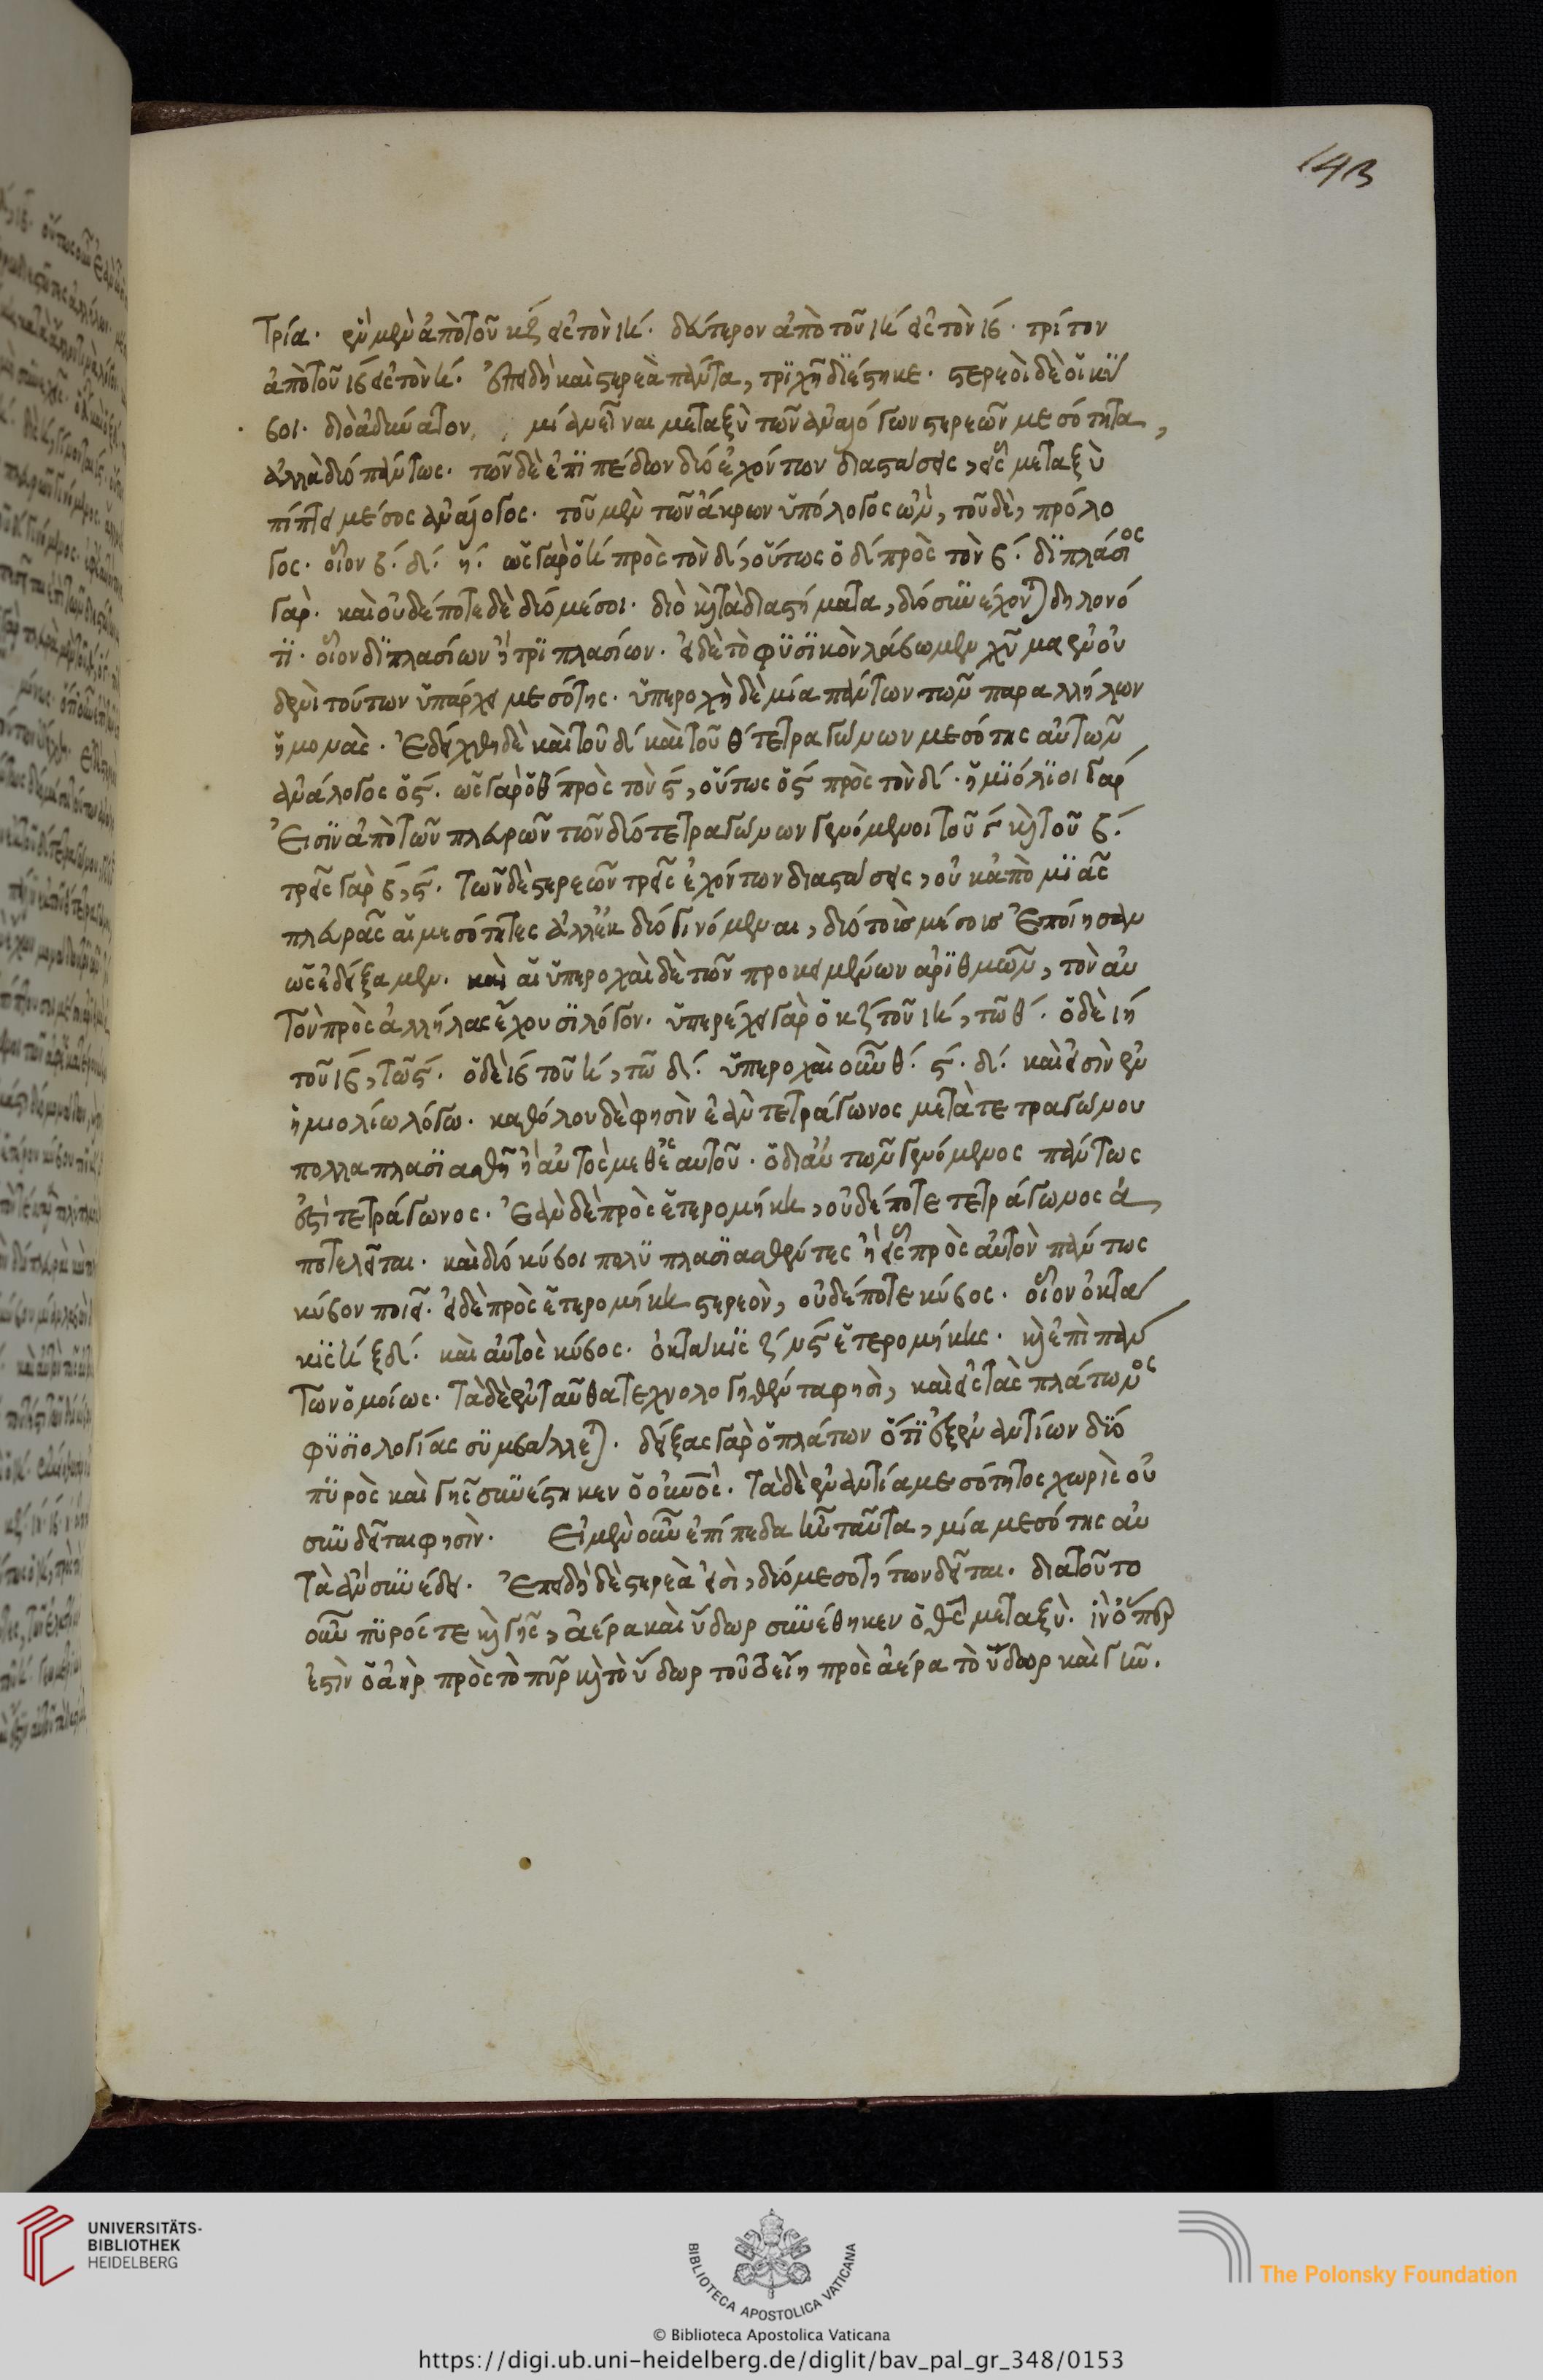 143
τρία. ἓν μὲν ἀπὸ τοῦ κζ εἰς τὸν ιη. δεύτερον ἀπὸ τοῦ ιη εἰς τὸν ιβ. τρίτον
ἀπὸ τοῦ ιβ εἰς τὸν η. ἐπειδὴ καὶ στερεὰ πάντα, τριχῆ διέστηκε. στερεοὶ δὲ οἱ κύ
βοι. διὸ ἀδύνατον, μίαν εἶναι μεταξὺ τῶν ἀναλόγων στερεῶν μεσότητα,
ἀλλὰ δύο πάντως. τῶν δὲ ἐπιπέδων δύο ἐχόντων διαστάσεις, εἷς μεταξὺ
πίπτει μέσος ἀνάλογος. τοῦ μὲν τῶν ἄκρων ὑπόλογος ὢν, τοῦ δὲ, πρόλο
γος. οἷον β. δ. η. ὡς γὰρ ὁ η πρὸς τὸν δ, οὕτως ὁ δ πρὸς τὸν β. διπλάσιος
γάρ. καὶ οὐδέποτε δὲ δύο μέσοι. διὸ καὶ τὰ διαστήματα, δύο συνέχονται δηλονό
τι. οἷον διπλασίων ἢ τριπλασίων. εἰ δὲ τὸ φυσικὸν λάβωμεν χῦμα ἐν οὐ
δενὶ τούτων ὑπάρχει μεσότης. ὑπεροχὴ δὲ μία πάντων τῶν παραλλήλων
ἡ μονάς. ἐδείχθη δὲ καὶ τοῦ δ καὶ τοῦ θ τετραγώνων μεσότης αὐτῶν
ἀνάλογος ὁ ς. ὡς γὰρ ὁ θ πρὸς τὸν ς, οὕτως ὁ ς πρὸς τὸν δ. ἡμιόλιοι γάρ
εἰσιν ἀπὸ τῶν πλευρῶν τῶν δύο τετραγώνων γενόμενοι τοῦ γ καὶ τοῦ β.
τρεῖς γὰρ β, ς. τῶν δὲ στερεῶν τρεῖς ἐχόντων διαστάσεις, οὐκ ἀπὸ μιᾶς
πλευρᾶς αἱ μεσότητες ἀλλ' ἐκ δύο γινόμεναι, δύο τοῖς μέσοις ἐποίησαν
ὡς ἐδείξαμεν. καὶ αἱ ὑπεροχαὶ δὲ τῶν προκειμένων ἀριθμῶν, τὸν αὐ
τὸν πρὸς ἀλλήλας ἔχουσι λόγον. ὑπερέχει γὰρ ὁ κζ τοῦ ιη, τῶ θ. ὁ δὲ ιη
τοῦ ιβ, τῶ ς. ὁ δὲ ιβ τοῦ η, τῶ δ. ὑπεροχαὶ οὖν θ. ς. δ. καὶ εἰσὶν ἐν
ἡμιολίω λόγω. καθόλου δὲ φησὶν ἐὰν τετράγωνος μετὰ τετραγώνου
πολλαπλασιασθῆ ἢ αὐτὸς μεθ' ἑαυτοῦ. ὁ δι' αὐτῶν γενόμενος πάντως
ἐστὶ τετράγωνος. ἐὰν δὲ πρὸς ἑτερομήκη, οὐδέποτε τετράγωνος ἀ
ποτελεῖται. καὶ δύο κύβοι πολυπλασιασθέντες ἢ εἷς πρὸς αὐτὸν πάντως
κύβον ποιεῖ. εἰ δὲ πρὸς ἑτερομήκη στερεὸν, οὐδέποτε κύβος. οἷον ὀκτά
κις η ξδ. καὶ αὐτὸς κύβος. ὀκτάκις ζ νς ἑτερομήκης. καὶ ἐπὶ πάν
των ὁμοίως. τὰ δὲ ἐνταῦθα τεχνολογηθέντα φησὶ, καὶ εἰς τὰς πλάτωνος
φυσιολογίας συμβάλλεται. δείξας γὰρ ὁ πλάτων ὅτι ἐξ ἐναντίων δύο
πυρὸς καὶ γῆς συνέστηκεν ὁ οὐρανός. τὰ δὲ ἐναντία μεσότητος χωρὶς οὐ
συνδεῖται φησίν. Εἰ μὲν οὖν ἐπίπεδα ἦν ταῦτα, μία μεσότης αὐ
τὰ ἂν συνέδει. ἐπειδὴ δὲ στερεὰ εἰσὶ, δύο μεσοτήτων δεῖται. διατοῦτο
οὖν πυρός τε καὶ γῆς, ἀέρα καὶ ὕδωρ συνέθηκεν ὁ θεὸς μεταξύ. ἵν' ὅπερ
ἐστὶν ὁ ἀὴρ πρὸς τὸ πῦρ καὶ τὸ ὕδωρ τοῦτ' εἴη πρὸς ἀέρα τὸ ὕδωρ καὶ γῆν.
UNIVERSITÄTS-
BIBLIOTHEK
HEIDELBERG
BIBLIOTECA APOSTOLICA VATICANA
The Polonsky Foundation
© Biblioteca Apostolica Vaticana
https://digi.ub.uni-heidelberg.de/diglit/bav_pal_gr_348/0153